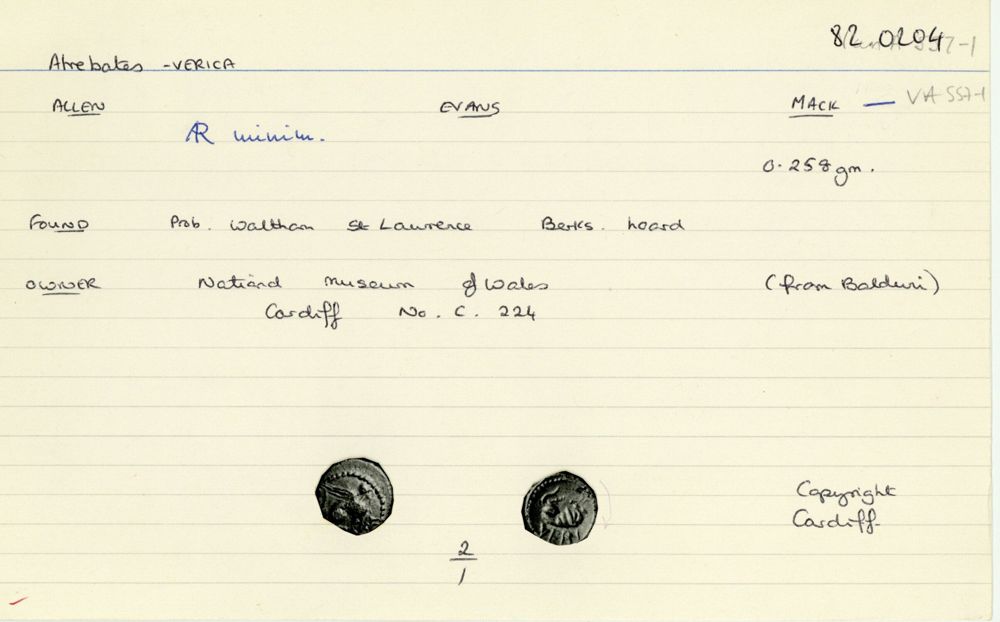 82.0204
Atrebates - VERICA
ALLEN EVANS MACK — VA 557-1
AR minim.
0.258 gm.
FOUND Prob. Waltham St Lawrence Berks. hoard
OWNER National Museum of Wales (from Balduin)
Cardiff No. C. 224
VERI
Copyright
Cardiff.
2
1